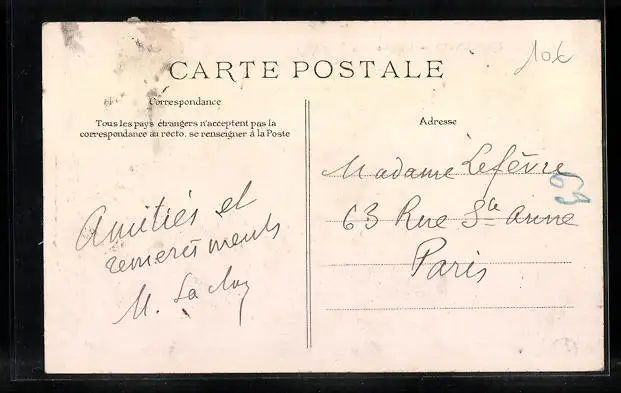 10€
CARTE POSTALE
Correspondance
Tous les pays étrangers n'acceptent pas la
correspondance au recto, se renseigner à la Poste
Adresse
Madame Lefèvre
63
63 Rue Ste Anne
Paris
Amitiés et
remerciements
M.